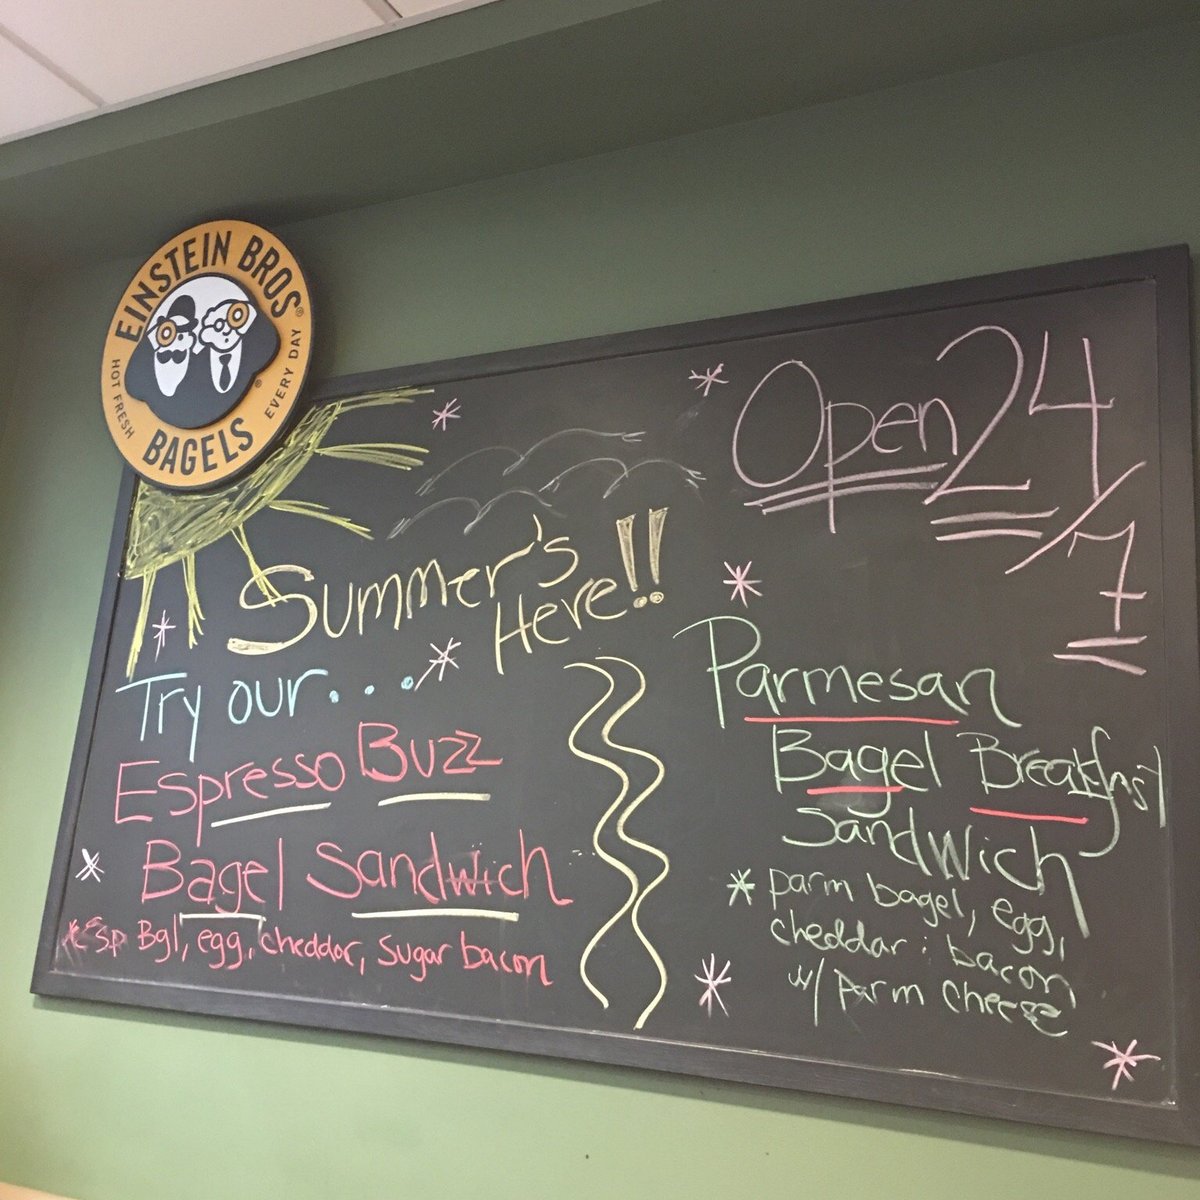 EINSTEIN BROS®
HOT FRESH
EVERY DAY
BAGELS
Open 24/7
Summer's
Here!!
Try our....
Espresso Buzz
Bagel Sandwich
* esp Bgl, egg, cheddar, sugar bacon
Parmesan
Bagel Breakfast
Sandwich
* parm bagel, egg,
cheddar : bacon
w/ Parm cheese